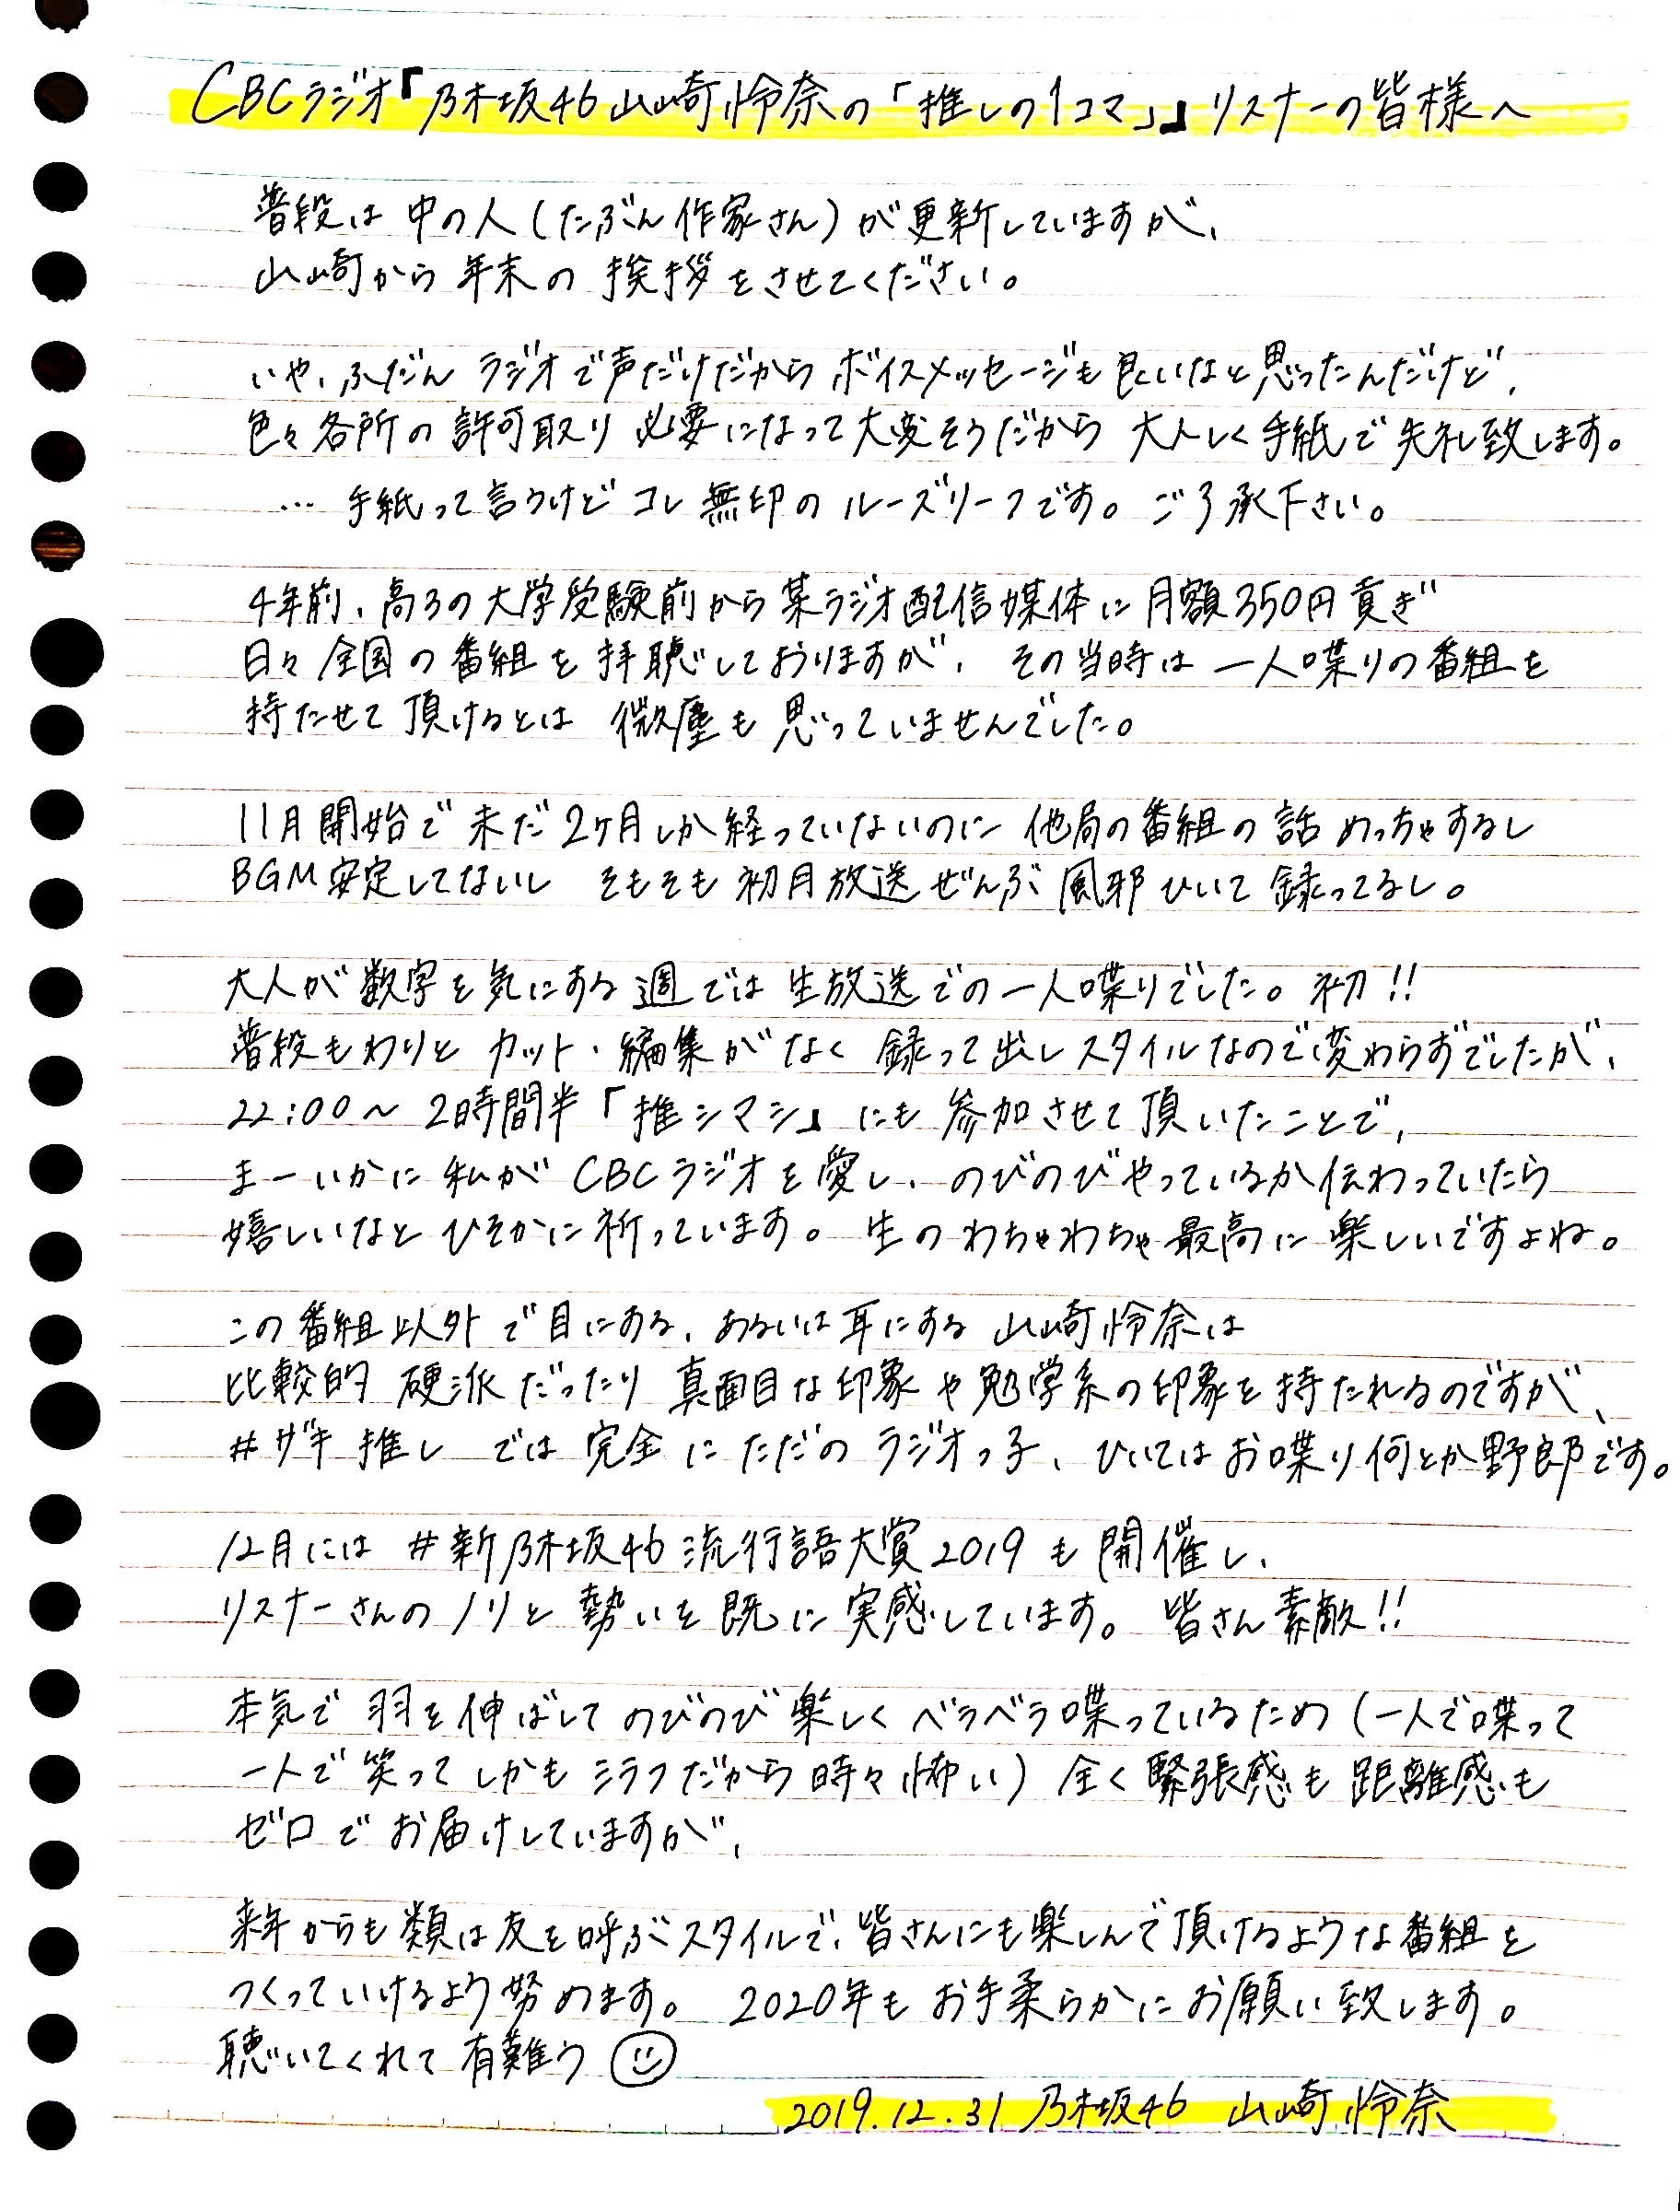 CBCラジオ『乃木坂46山崎怜奈の「推しの1コマ」』リスナーの皆様へ
普段は中の人(たぶん作家さん)が更新していますが、
山崎から年末の挨拶をさせてください。
いや、ふだんラジオで声だけだからボイスメッセージも良いなと思ったんだけど、
色々各所の許可取り必要になって大変そうだから大人しく手紙で失礼致します。
… 手紙って言うけどコレ無印のルーズリーフです。ご了承下さい。
4年前、高3の大学受験前から某ラジオ配信媒体に月額350円貢ぎ
日々全国の番組を拝聴しておりますが、その当時は一人喋りの番組を
持たせて頂けるとは微塵も思っていませんでした。
11月開始で未だ2ヶ月しか経っていないのに他局の番組の話めっちゃするし
BGM安定してないしそもそも初月放送ぜんぶ風邪ひいて録ってるし。
大人が数字を気にする週では生放送での一人喋りでした。初!!
普段もわりとカット・編集がなく録って出しスタイルなので変わらずでしたが、
22:00~2時間半「推シマシ」にも参加させて頂いたことで、
まーいかに私がCBCラジオを愛し、のびのびやっているか伝わっていたら
嬉しいなとひそかに祈っています。生のわちゃわちゃ最高に楽しいですよね。
この番組以外で目にする、あるいは耳にする山崎怜奈は
比較的硬派だったり真面目な印象や勉学系の印象を持たれるのですが、
#ザキ推しでは完全にただのラジオっ子、ひいてはお喋り何とか野郎です。
12月には#新乃木坂46流行語大賞2019も開催し、
リスナーさんのノリと勢いを既に実感しています。皆さん素敵!!
本気で羽を伸ばしてのびのび楽しくベラベラ喋っているため(一人で喋って
一人で笑ってしかもシラフだから時々怖い)全く緊張感も距離感も
ゼロでお届けしていますが、
来年からも類は友を呼ぶスタイルで、皆さんにも楽しんで頂けるような番組を
つくっていけるよう努めます。2020年もお手柔らかにお願い致します。
聴いてくれて有難う
2019.12.31 乃木坂46 山崎怜奈